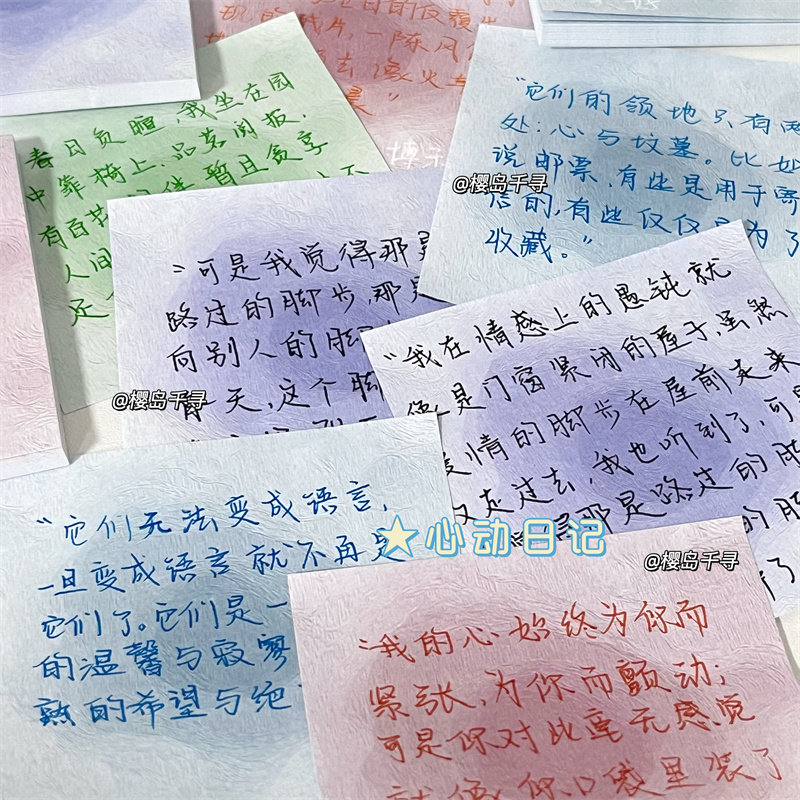 现的碎片,一阵风
春日负暄,我坐在园
中靠椅上,品茗阅报,
有百
暂且贪享
人间
还
博
"它们的领地只有两
处:心与坟墓。比如
说邮票,有些是用于寄
信的,有些仅仅只为了
收藏。"
@樱岛千寻
"可是我觉得那是
路过的脚步,那是
向别人的脚
有一天,这个脚
@樱岛千寻
"我在情感上的愚钝就
像是门窗紧闭的屋子,虽然
爱情的脚步在屋前走来
又走过去,我也听到了,可是
我觉得那是路过的脚
★心动日记
"它们无法变成语言,
一旦变成语言就不再是
它们了。它们是一
的温馨与寂寥
熟的希望与绝
@樱岛千寻
"我的心始终为你而
紧张,为你而颤动;
可是你对此毫无感觉
就像你口袋里装了